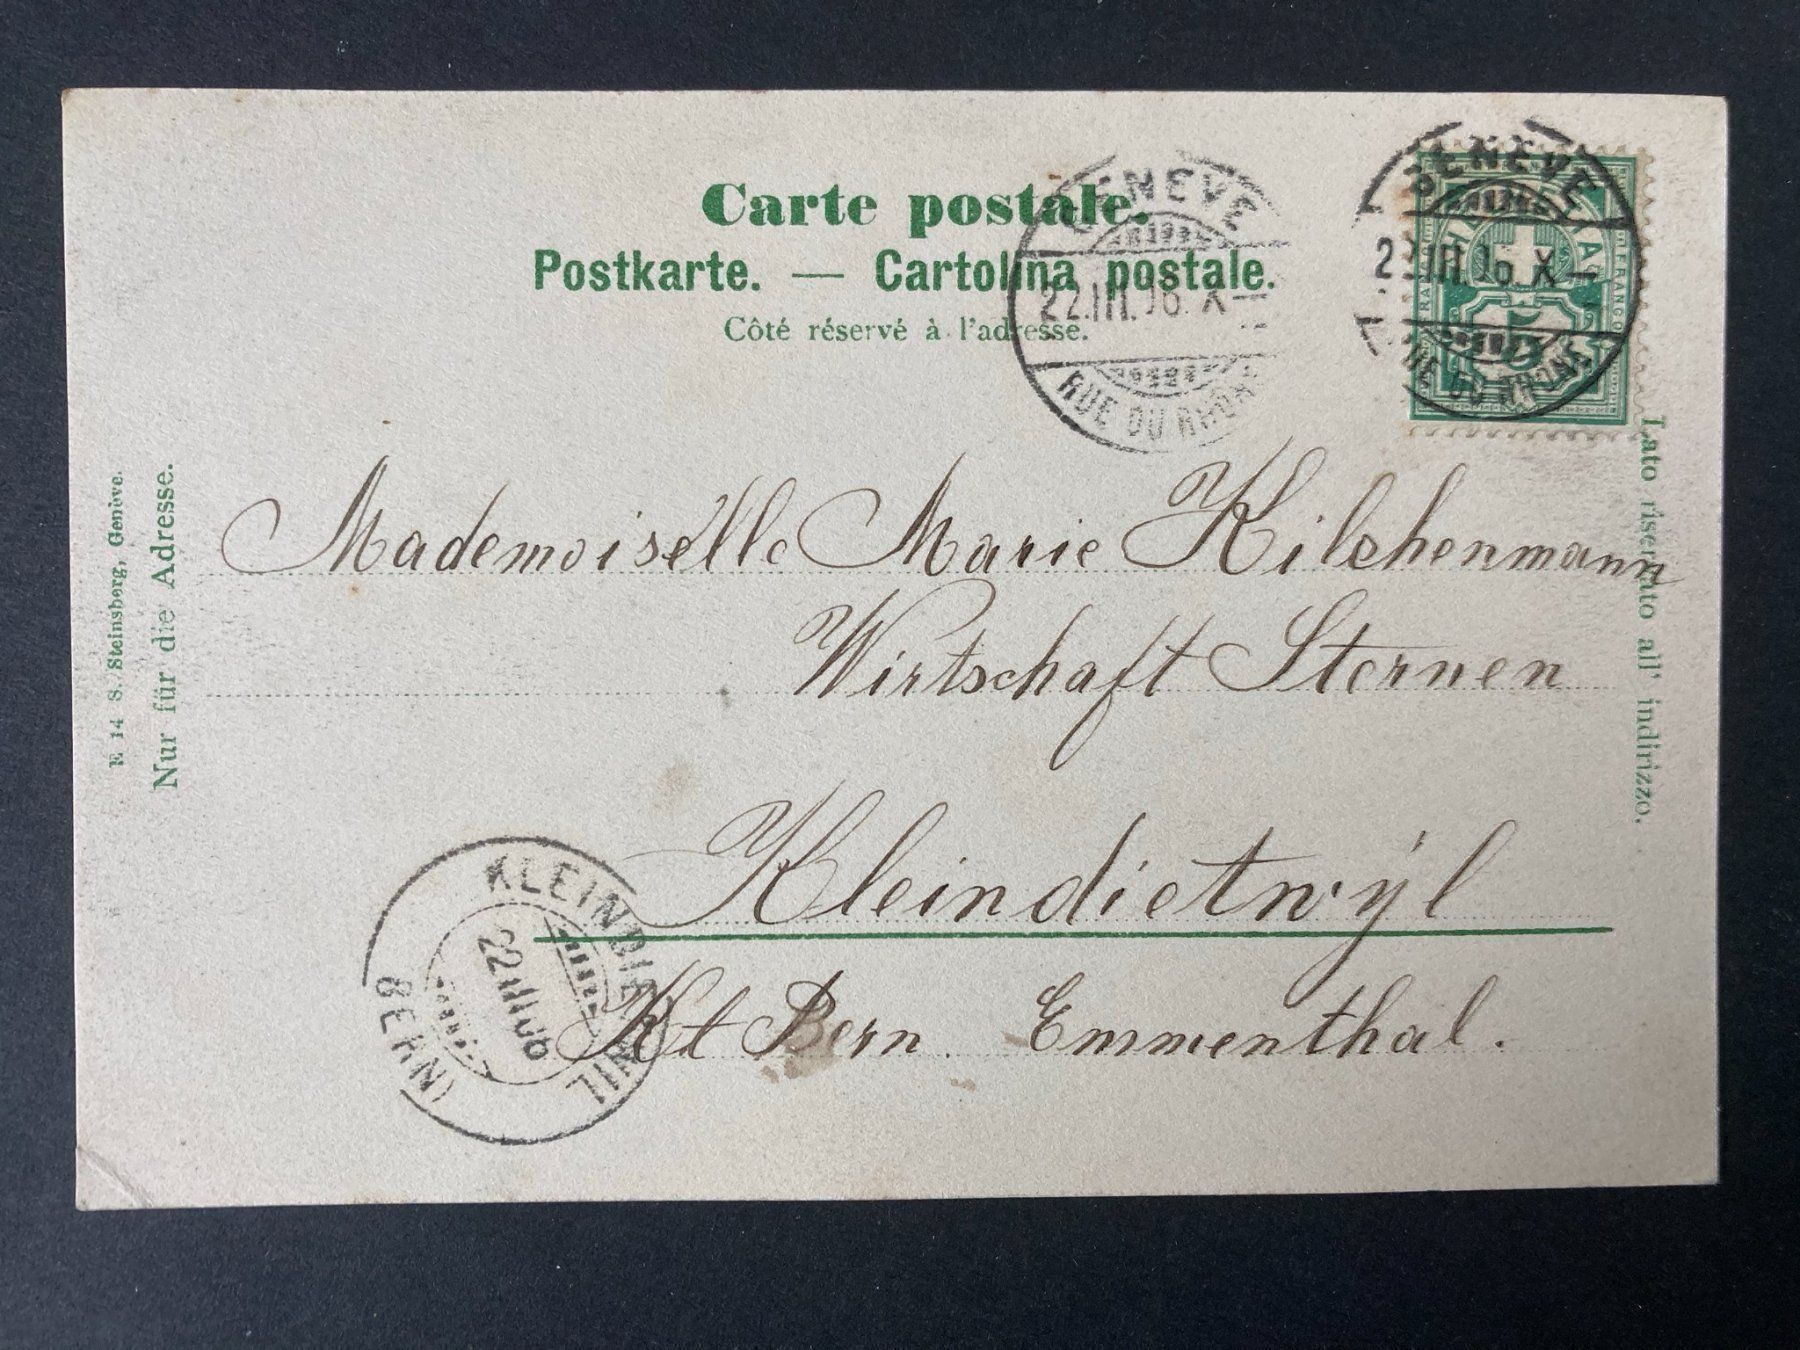 Carte postale.
Postkarte. — Cartolina postale.
Côté réservé à l'adresse.
GENEVE
22.III.06. X—
RUE DU RHONE
GENEVE
22.III.06. X—
RUE DU RHONE
FRANCO
5
E 14 S. Steinsberg, Genève.
Nur für die Adresse.
Lato riservato all' indirizzo.
Mademoiselle Marie Hilchenmann
Wirtschaft Sternen
Kleindietwÿl
Kt Bern. Emmenthal.
KLEINDIETWIL
22 III 06
(BERN)